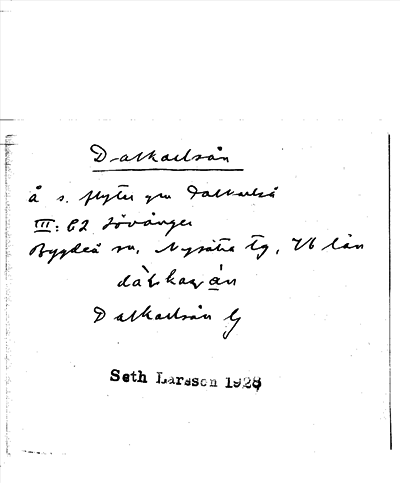 Dalkarlsån
å s. flyter gm Dalkarlså
III: C2 Lövånger
Bygdeå sn, Nysätra tg, Vb län
Dalkarlsån G
Seth Larsson 1928